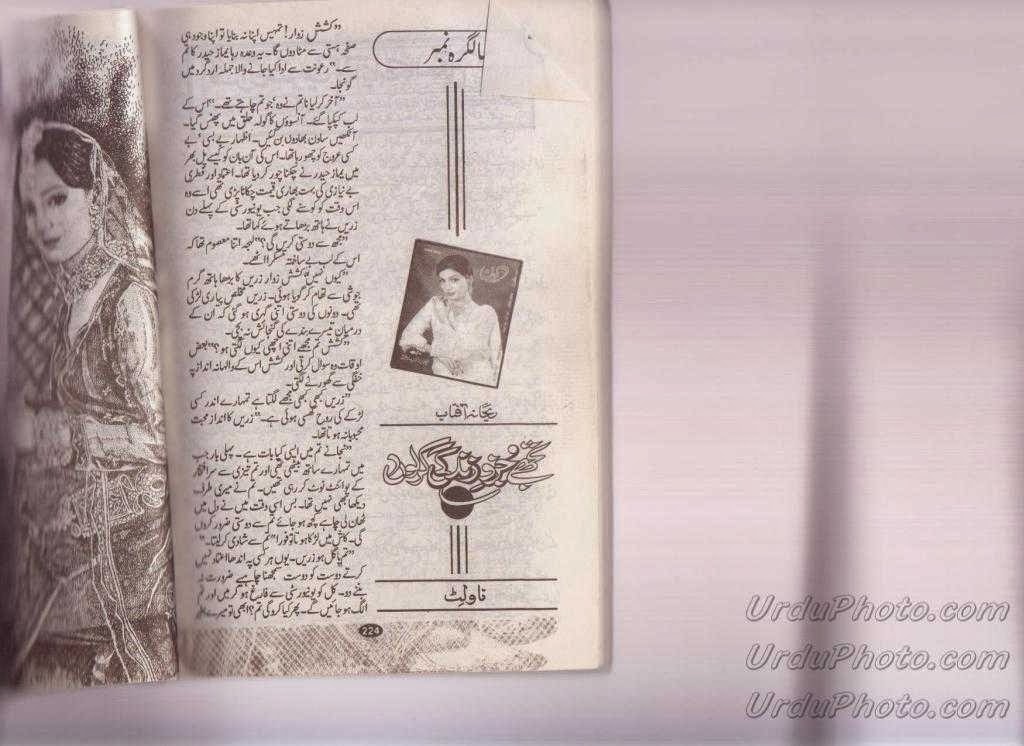 سالگرہ نمبر
ریحانہ آفتاب
تجھے جزوِ زندگی کر لوں
ناولٹ
”کشش زوار! تمہیں اپنا نہ بنایا تو اپنا وجود ہی
صفحہ ہستی سے مٹا دوں گا۔ یہ وعدہ رہا یماز حیدر کا تم
سے۔“ رعونت سے ادا کیا جانے والا جملہ ارد گرد میں
گونجا۔
”آخر کر لیا نا تم نے وہ‘ جو تم چاہتے تھے۔“ اس کے
لب کپکپا گئے۔ آنسوؤں کا گولہ حلق میں پھنس گیا۔
آنکھیں ساون بھادوں بن گئیں۔ اظہار بے بسی‘ بے
کسی عروج کو چھو رہا تھا۔ اس کی آن بان کو کیسے پل بھر
میں یماز حیدر نے چکنا چور کر دیا تھا۔ اعتماد اور فطری
بے نیازی کی بہت بھاری قیمت چکانا پڑی تھی اسے وہ
اس وقت کو کوسنے لگی جب یونیورسٹی کے پہلے دن
زریں نے ہاتھ بڑھاتے ہوئے کہا تھا۔
”مجھ سے دوستی کریں گی؟“ لہجہ اتنا معصوم تھا کہ
اس کے لب بے ساختہ مسکرا اٹھے۔
”کیوں نہیں“ کشش زوار زریں کا بڑھا ہاتھ گرم
جوشی سے تھام کر گویا ہوئی۔ زریں مخلص پیاری لڑکی
تھی۔ دونوں کی دوستی اتنی گہری ہو گئی کہ ان کے
درمیان تیسرے بندے کی گنجائش نہ بچی۔
”کشش تم مجھے اتنی اچھی کیوں لگتی ہو؟“ بعض
اوقات وہ سوال کرتی اور کشش اس کے والہانہ انداز پہ
خفگی سے گھورنے لگتی۔
”زریں کبھی کبھی مجھے لگتا ہے تمہارے اندر کسی
لڑکے کی روح گھسی ہوئی ہے۔“ زریں کا انداز محبت
محبوبانہ ہوتا تھا۔
”نجانے تم میں ایسی کیا بات ہے۔ پہلی بار جب
میں تمہارے ساتھ بیٹھی تھی اور تم تیزی سے سر آفکار
کے پوائنٹ نوٹ کر رہی تھیں۔ تم نے میری طرف
دیکھا بھی نہیں تھا۔ بس اسی وقت میں نے دل میں
ٹھان لی چاہے کچھ ہو جائے تم سے دوستی ضرور کروں
گی۔ کاش میں لڑکا ہوتا تو فورا“ تم سے شادی کر لیتا۔“
”تم پاگل ہو زریں۔ یوں ہر کسی پہ اندھا اعتماد نہیں
کرتے دوست کو دوست سمجھنا چاہیے ضرورت نہ
بننے دو۔ کل کو یونیورسٹی سے فارغ ہو کر میں اور تم
الگ ہو جائیں گے۔ پھر کیا کرو گی تم؟ ابھی تو میرے
224
UrduPhoto.com
UrduPhoto.com
UrduPhoto.com